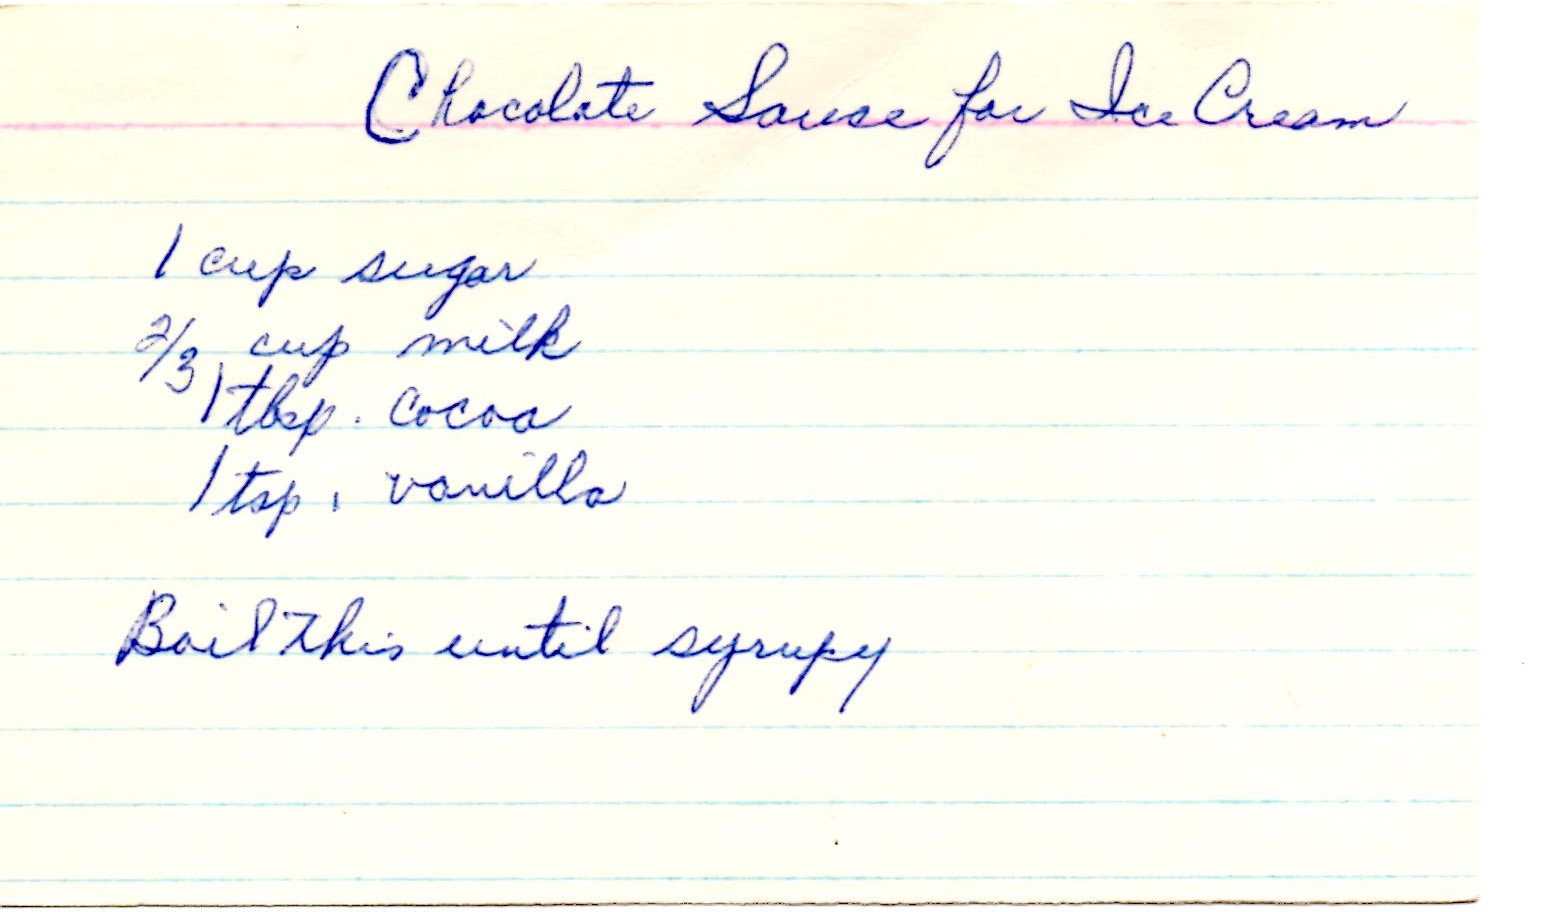 Chocolate Sause for Ice Cream
1 cup sugar
2/3 cup milk
1 tbsp. cocoa
1 tsp. vanilla
Boil this until syrupy